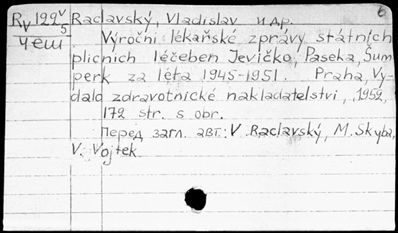 б
R 122 v Raclavský, Vladislav и др.
V 5
чеш Výroční lékařské zprávy státních
plicních léčeben Jevíčko, Paseka, Šum
perk za léta 1945-1951. Praha, Vy
dalo zdravotnické nakladatelství, 1952,
172 str. s obr.
Перед загл. авт: V. Raclavský, M. Skyba,
V. Vojtek.